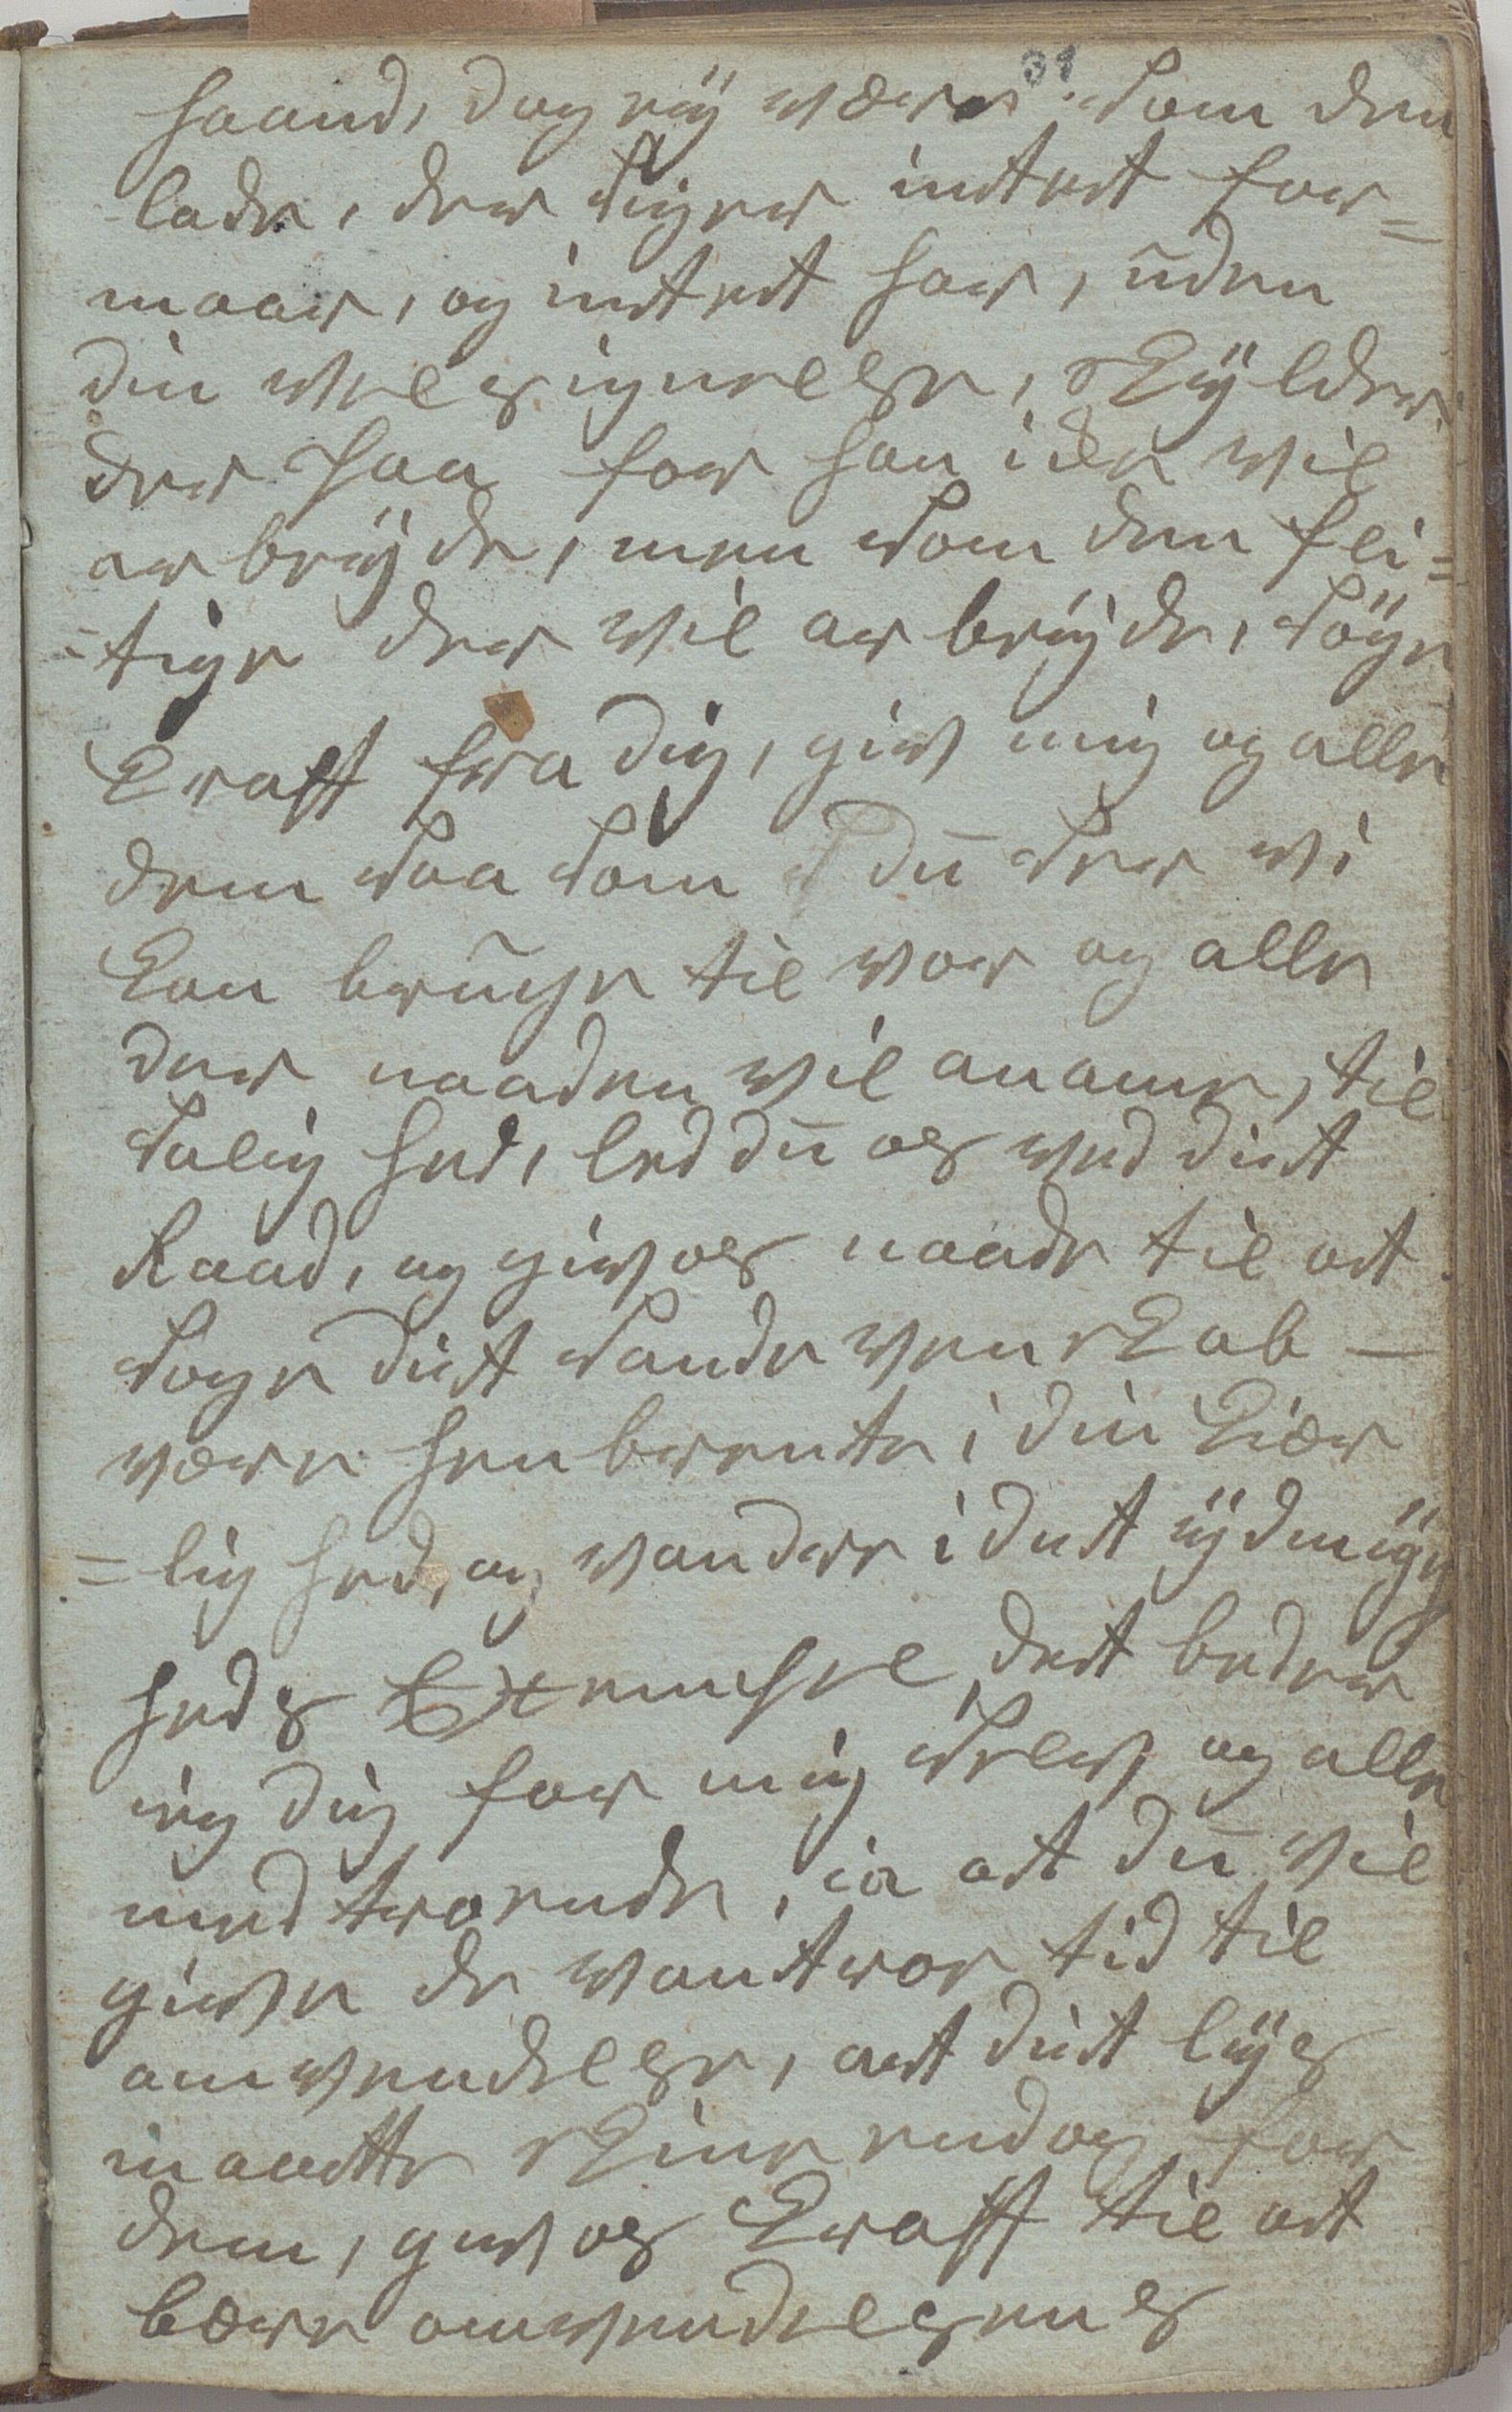 31
haand, dog eÿ være som den
lade, der siger intet for=
maar, og intet har, uden
din velsignelsse, skÿlder
der paa for han ike vil
arbeÿde, men som den fli=
=tige der vil arbeÿde, søge
Kraft fra dig, giv mig og alle
dem saa som du ser vi
kan bruge til vor og alle
der naaden vil aname, til
salighed, led du os ved dit
Raad, og giv os naade til at
søge dit sande venskab —
være henbrente i din Kiær
=lighed, og vandre i dit ÿdmÿg
heds Exempel, det beder
ieg dig for mig selv og alle
medtroende, ia at du vil
give de vantroe tid til
omvendelsse, at dit lÿs
maatte skine endog for
dem, giv os Kraft til at
bære omvendelsens